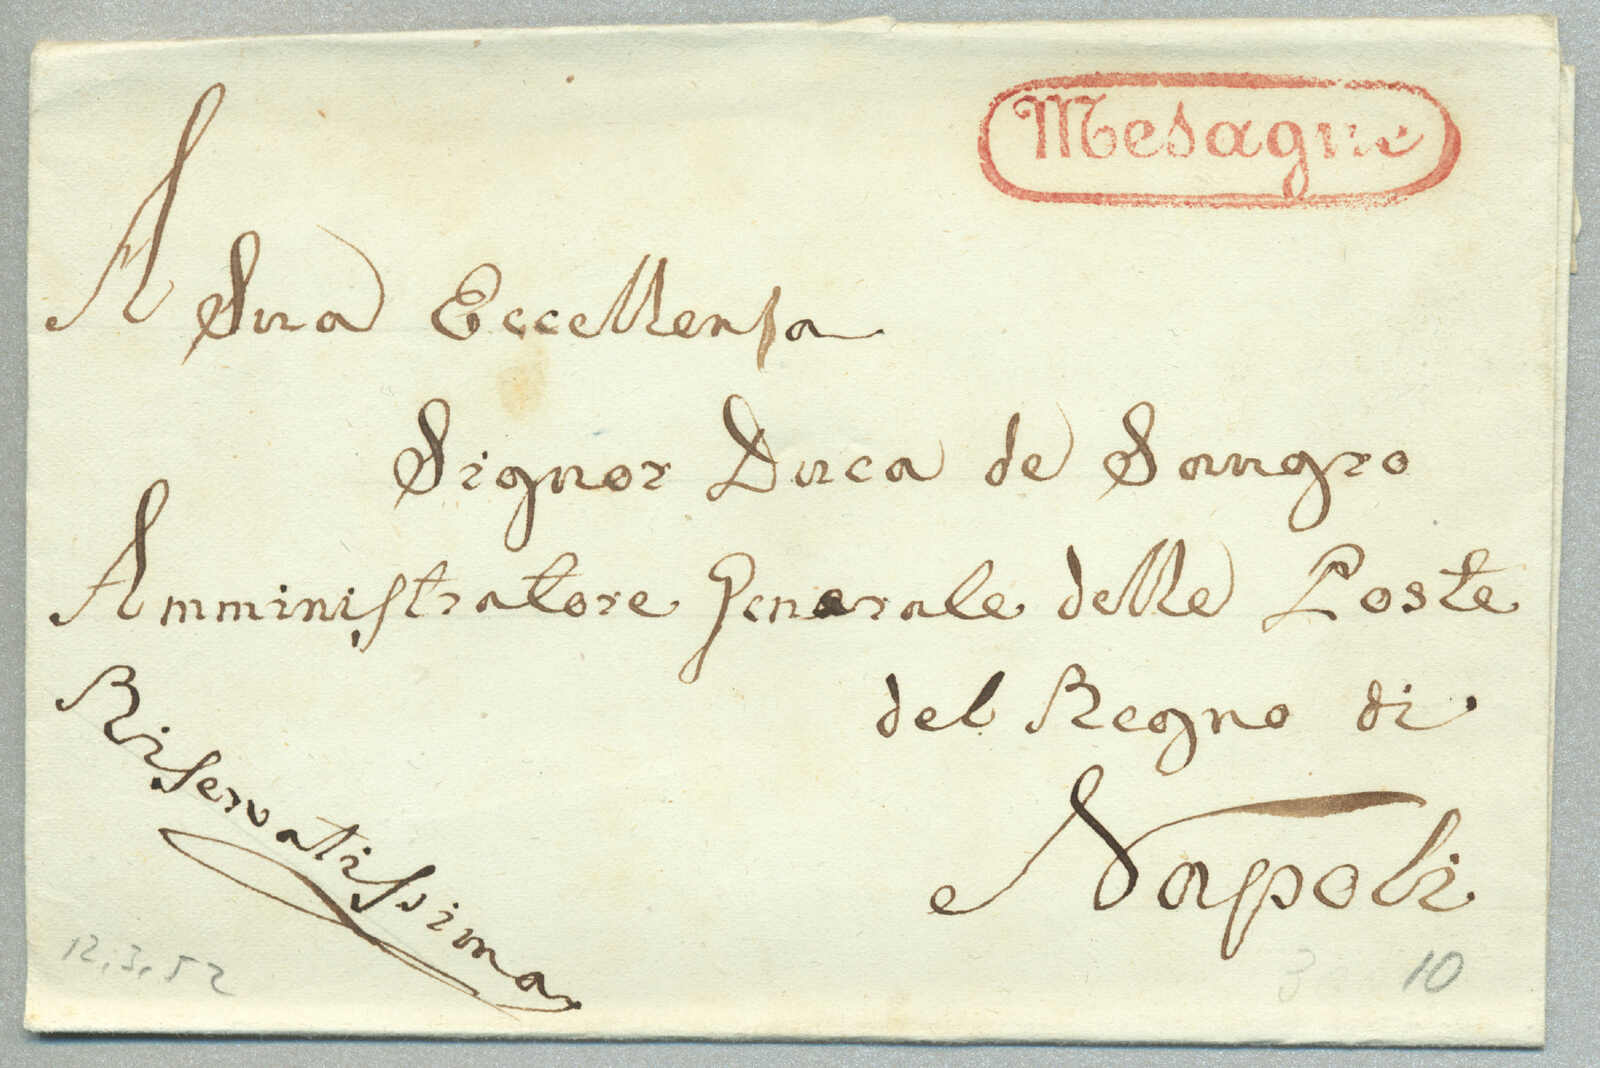 Mesagne
A Sua Eccellenza
Signor Duca de Sangro
Amministratore Generale delle Poste
del Regno di
Napoli
Riservatissima
12.3.52
10